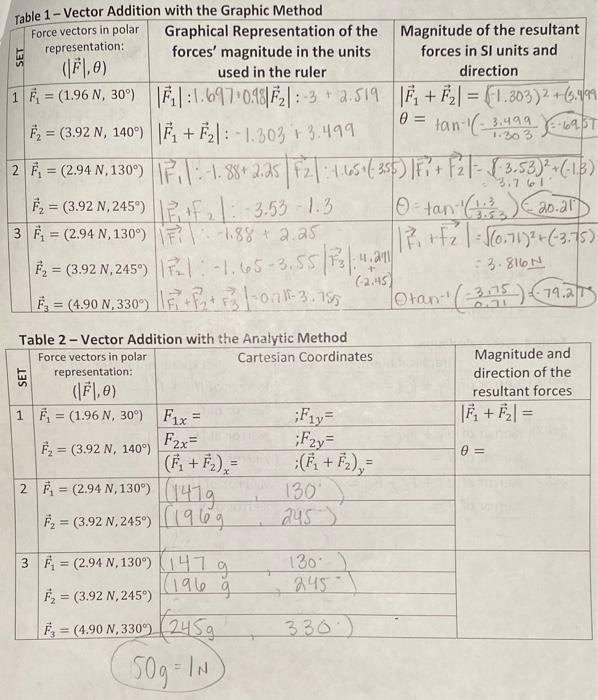 Table 1 – Vector Addition with the Graphic Method
SET
Force vectors in polar representation: (|F⃗|, θ)
Graphical Representation of the forces' magnitude in the units used in the ruler
Magnitude of the resultant forces in SI units and direction
1 F⃗₁ = (1.96 N, 30°) |F⃗₁|: 1.697+0.98 |F⃗₂|: -3 + 2.519 |F⃗₁ + F⃗₂| = √(-1.303)² + (3.499
F⃗₂ = (3.92 N, 140°) |F⃗₁ + F⃗₂|: -1.303 + 3.499 θ = tan⁻¹(- 3.499 / 1.303) = -69.57
2 F⃗₁ = (2.94 N, 130°) |F⃗₁|: -1.88+2.25 |F⃗₂|: -1.65+(-3.55) |F⃗₁ + F⃗₂| = √(-3.53)²+(-1.3)
= 3.761
F⃗₂ = (3.92 N, 245°) |F⃗₁+F⃗₂|: -3.53 -1.3 θ = tan⁻¹(1.3 / 3.53) = 20.21
3 F⃗₁ = (2.94 N, 130°) |F⃗₁|: -1.88 + 2.25 |F⃗₁ + F⃗₂| = √(0.71)²+(-3.75)
F⃗₂ = (3.92 N, 245°) |F⃗₂|: -1.65 -3.55 |F⃗₃|: 4.241 + (-2.45) = 3.816N
F⃗₃ = (4.90 N, 330°) |F⃗₁+F⃗₂+F⃗₃| = 0.71 -3.75 θ tan⁻¹(-3.75 / 0.71) = -79.2
Table 2 – Vector Addition with the Analytic Method
SET
Force vectors in polar representation: (|F⃗|, θ)
Cartesian Coordinates
Magnitude and direction of the resultant forces
1 F⃗₁ = (1.96 N, 30°) F₁ₓ = ;F₁y= |F⃗₁ + F⃗₂| =
F⃗₂ = (3.92 N, 140°) F₂ₓ= ;F₂y= θ =
(F⃗₁ + F⃗₂)ₓ= ;(F⃗₁ + F⃗₂)y=
2 F⃗₁ = (2.94 N, 130°) (147g , 130°)
F⃗₂ = (3.92 N, 245°) (196g , 245°)
3 F⃗₁ = (2.94 N, 130°) (147 g , 130°)
F⃗₂ = (3.92 N, 245°) (196 g , 245°)
F⃗₃ = (4.90 N, 330°) (245g , 330°)
50g = 1N